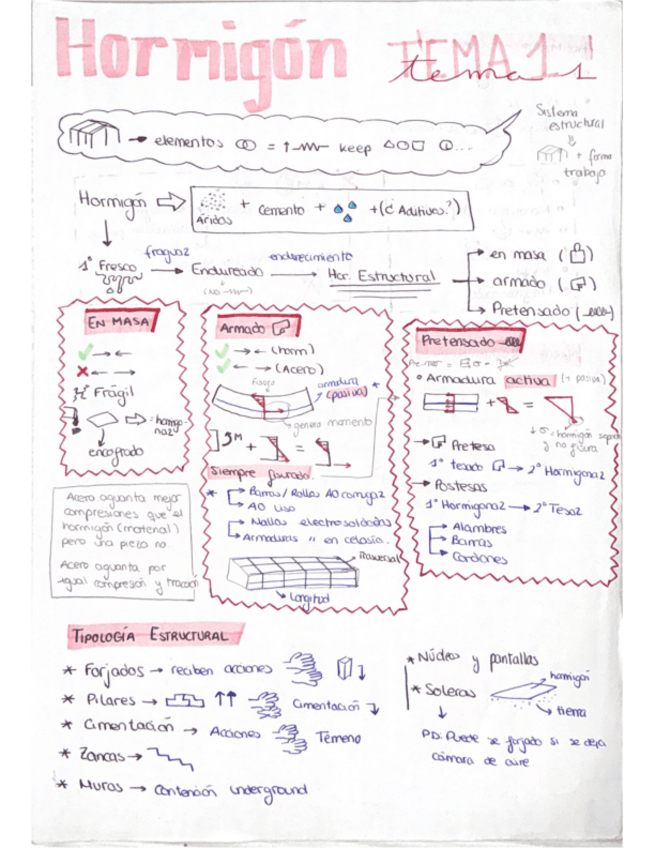 Hormigón TEMA 1
tema 1
Sistema estructural
+ forma trabajo
→ elementos = keep ...
Hormigón ⇒ Áridos + Cemento + +(¿Aditivos?)
1º Fresco → fragua2 → Endurecido → endurecimiento → Hor. Estructural
→ en masa
→ armado
→ Pretensado
EN MASA
✓ → ←
✗ ← →
Frágil
encofrado
Armado
✓ → ← (horm)
✓ ← → (Acero)
armadura (pasiva) *
genera momento
M + =
Siempre fisurado.
* Barras/Rollos AO corruga2
→ AO liso
→ Mallas electrosoldadas
→ Armaduras " en celosía.
trasversal
Longitud
Pretensado
° Armadura activa (+ pasiva)
+ =
y no fisura
→ Pretesa
1º tesado → 2º Hormigona2
→ Postesas
1º Hormigona2 → 2º Tesa2
→ Alambres
→ Barras
→ Cordones
Acero aguanta mejor
compresiones que el
hormigón (material)
pero una pieza no.
Acero aguanta por
igual compresión y tracción
TIPOLOGÍA ESTRUCTURAL
* Forjados → reciben acciones
* Pilares → Cimentación
* Cimentación → Acciones Terreno
* Zancas →
* Muros → Contención underground
* Núcleo y pantallas
* Soleras
hormigón
tierra
PD: Puede ser forjado si se deja
cámara de aire